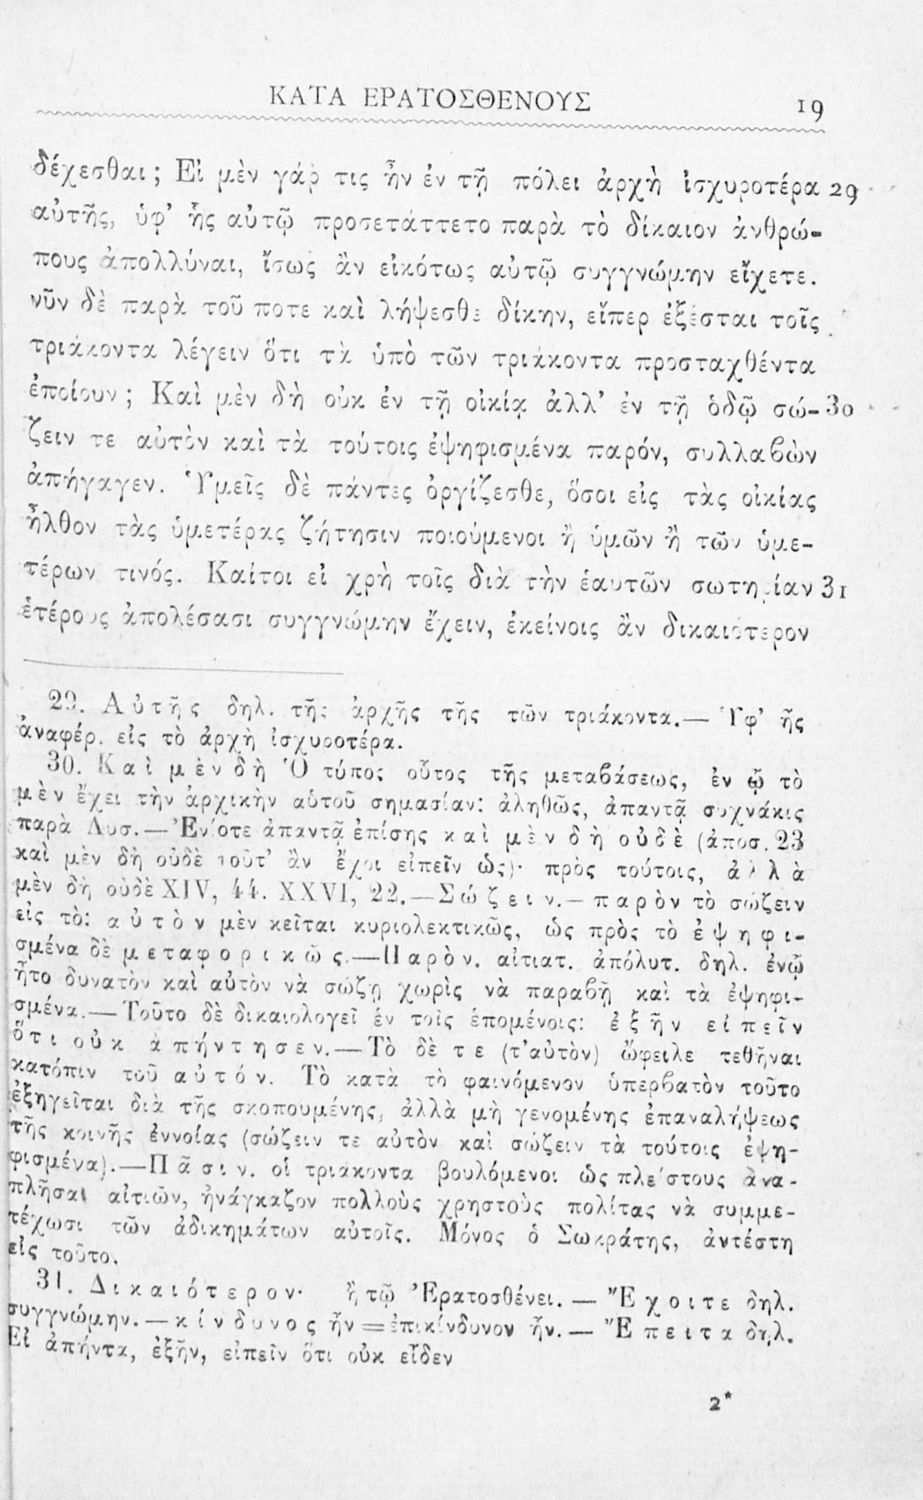 ΚΑΤΑ ΕΡΑΤΟΣΘΕΝΟΥΣ 19
δέχεσθαι; Εἰ μὲν γάρ τις ἦν ἐν τῇ πόλει ἀρχὴ ἰσχυροτέρα 29
αὐτῆς, ὑφ’ ἧς αὐτῷ προσετάττετο παρὰ τὸ δίκαιον ἀνθρώ-
πους ἀπολλύναι, ἴσως ἂν εἰκότως αὐτῷ συγγνώμην εἴχετε.
νῦν δὲ παρὰ τοῦ ποτε καὶ λήψεσθε δίκην, εἴπερ ἐξέσται τοῖς
τριάκοντα λέγειν ὅτι τὰ ὑπὸ τῶν τριάκοντα προσταχθέντα
ἐποίουν; Καὶ μὲν δὴ οὐκ ἐν τῇ οἰκίᾳ ἀλλ’ ἐν τῇ ὁδῷ σώ- 30
ζειν τε αὐτὸν καὶ τὰ τούτοις ἐψηφισμένα παρόν, συλλαβὼν
ἀπήγαγεν. Ὑμεῖς δὲ πάντες ὀργίζεσθε, ὅσοι εἰς τὰς οἰκίας
ἦλθον τὰς ὑμετέρας ζήτησιν ποιούμενοι ἢ ὑμῶν ἢ τῶν ὑμε-
τέρων τινός. Καίτοι εἰ χρὴ τοῖς διὰ τὴν ἑαυτῶν σωτηρίαν 31
ἑτέρους ἀπολέσασι συγγνώμην ἔχειν, ἐκείνοις ἂν δικαιότερον
29. Αὐτῆς δηλ. τῆς ἀρχῆς τῆς τῶν τριάκοντα.— Ὑφ’ ἧς
ἀναφέρ. εἰς τὸ ἀρχὴ ἰσχυροτέρα.
30. Καὶ μὲν δὴ Ὁ τύπος οὗτος τῆς μεταβάσεως, ἐν ᾧ τὸ
μὲν ἔχει τὴν ἀρχικὴν αὐτοῦ σημασίαν: ἀληθῶς, ἀπαντᾷ συχνάκις
παρὰ Λυσ.—Ἐνίοτε ἀπαντᾷ ἐπίσης καὶ μὲν δὴ οὐδὲ (ἀποσ. 23
καὶ μὲν δὴ οὐδὲ τοῦτ’ ἂν ἔχοι εἰπεῖν ὡς)· πρὸς τούτοις, ἀλλὰ
μὲν δὴ οὐδὲ XIV, 44. XXVI, 22.—Σώζειν.—παρὸν τὸ σώζειν
εἰς τὸ: αὐτὸν μὲν κεῖται κυριολεκτικῶς, ὡς πρὸς τὸ ἐψηφι-
σμένα δὲ μεταφορικῶς.—Παρὸν. αἰτιατ. ἀπόλυτ. δηλ. ἐνῷ
ἦτο δυνατὸν καὶ αὐτὸν νὰ σώζῃ χωρὶς νὰ παραβῇ καὶ τὰ ἐψηφι-
σμένα.—Τοῦτο δὲ δικαιολογεῖ ἐν τοῖς ἑπομένοις: ἐξῆν εἰπεῖν
ὅτι οὐκ ἀπήντησεν.—Τὸ δὲ τε (τ’αὐτὸν) ὤφειλε τεθῆναι
κατόπιν τοῦ αὐτόν. Τὸ κατὰ τὸ φαινόμενον ὑπερβατὸν τοῦτο
ἐξηγεῖται διὰ τῆς σκοπουμένης, ἀλλὰ μὴ γενομένης ἐπαναλήψεως
τῆς κοινῆς ἐννοίας (σώζειν τε αὐτὸν καὶ σώζειν τὰ τούτοις ἐψη-
φισμένα).—Πᾶσιν. οἱ τριάκοντα βουλόμενοι ὡς πλείστους ἀνα-
πλῆσαι αἰτιῶν, ἠνάγκαζον πολλοὺς χρηστοὺς πολίτας νὰ συμμε-
τέχωσι τῶν ἀδικημάτων αὐτοῖς. Μόνος ὁ Σωκράτης, ἀντέστη
εἰς τοῦτο.
31. Δικαιότερον· ἢ τῷ Ἐρατοσθένει. — Ἔχοιτε δηλ.
συγγνώμην.—κίνδυνος ἦν=ἐπικίνδυνον ἦν.— Ἔπειτα δηλ.
Εἰ ἀπήντα, ἐξῆν, εἰπεῖν ὅτι οὐκ εἶδεν
2*